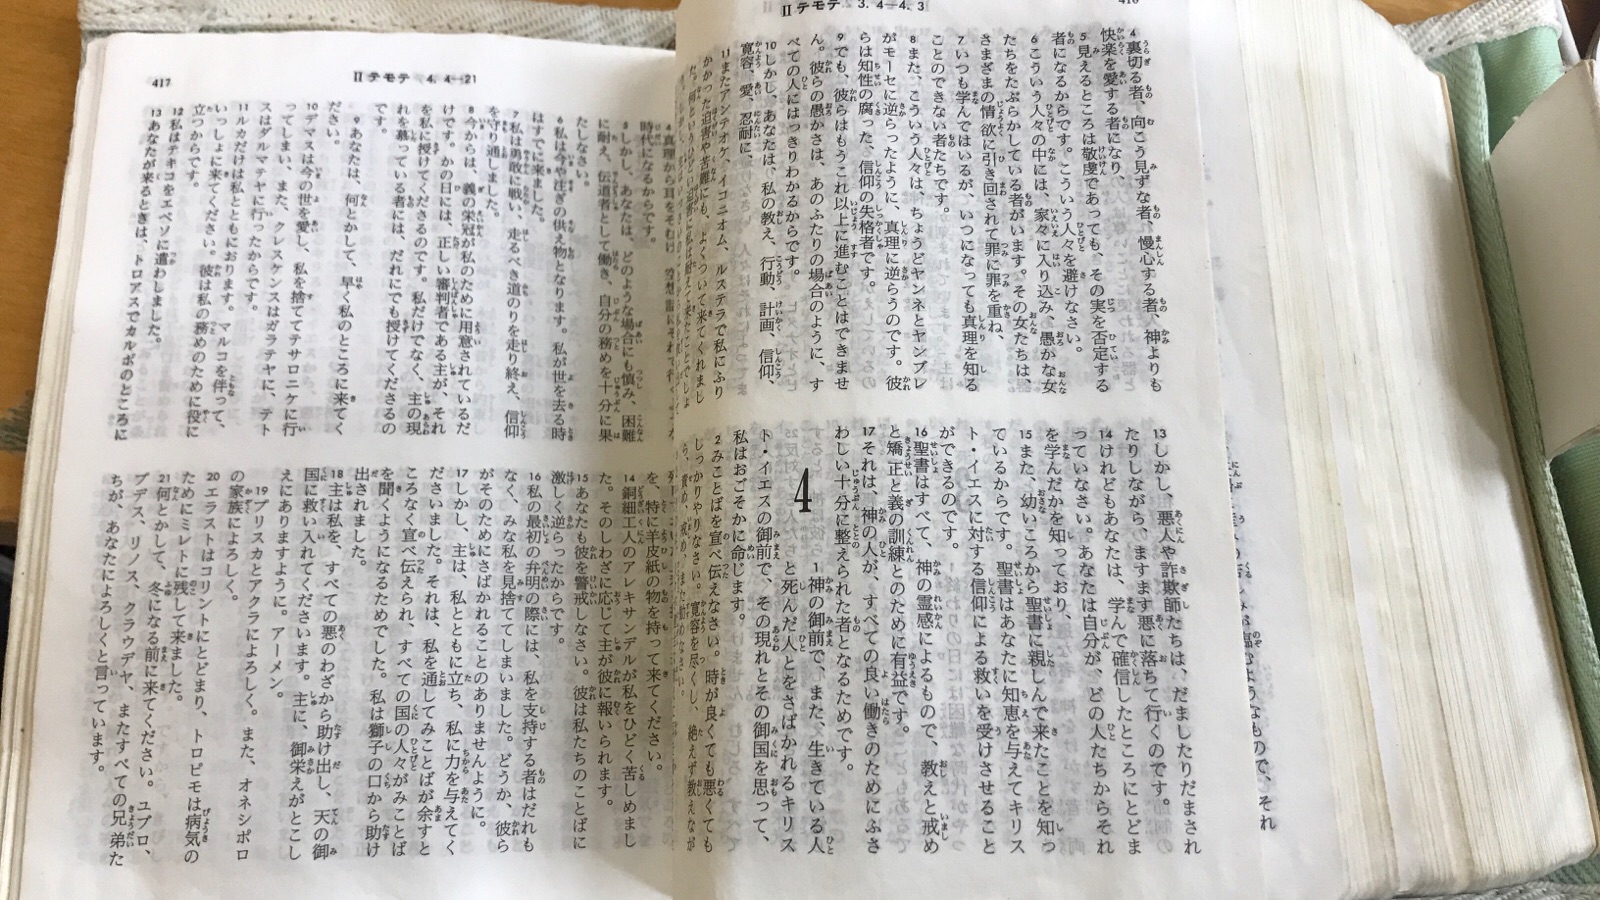 416
IIテモテ 3. 4—4. 3
4裏切る者、向こう見ずな者、慢心する者、神よりも
快楽を愛する者になり、
5見えるところは敬虔であっても、その実を否定する
者になるからです。こういう人々を避けなさい。
6こういう人々の中には、家々に入り込み、愚かな女
たちをたぶらかしている者がいます。その女たちは、
さまざまの情欲に引き回されて罪に罪を重ね、
7いつも学んではいるが、いつになっても真理を知る
ことのできない者たちです。
8また、こういう人々は、ちょうどヤンネとヤンブレ
がモーセに逆らったように、真理に逆らうのです。彼
らは知性の腐った、信仰の失格者です。
9でも、彼らはもうこれ以上に進むことはできませ
ん。彼らの愚かさは、あのふたりの場合のように、す
べての人にはっきりわかるからです。
10しかし、あなたは、私の教え、行動、計画、信仰、
寛容、愛、忍耐に、
11またアンテオケ、イコニオム、ルステラで私にふり
かかった迫害や苦難にも、よくついて来てくれまし
13しかし、悪人や詐欺師たちは、だましたりだまされ
たりしながら、ますます悪に落ちて行くのです。
14けれどもあなたは、学んで確信したところにとどま
っていなさい。あなたは自分が、どの人たちからそれ
を学んだかを知っており、
15また、幼いころから聖書に親しんで来たことを知っ
ているからです。聖書はあなたに知恵を与えてキリス
ト・イエスに対する信仰による救いを受けさせること
ができるのです。
16聖書はすべて、神の霊感によるもので、教えと戒め
と矯正と義の訓練とのために有益です。
17それは、神の人が、すべての良い働きのためにふさ
わしい十分に整えられた者となるためです。
4
1神の御前で、また、生きている人
と死んだ人とをさばかれるキリス
ト・イエスの御前で、その現れとその御国を思って、
私はおごそかに命じます。
2みことばを宣べ伝えなさい。時が良くても悪くても
しっかりやりなさい。寛容を尽くし、絶えず教えなが
ら、責め、戒め、また勧めなさい。
417
IIテモテ 4. 4—21
4真理から耳をそむけ、空想話にそれて行くような
時代になるからです。
5しかし、あなたは、どのような場合にも慎み、困難
に耐え、伝道者として働き、自分の務めを十分に果
たしなさい。
6私は今や注ぎの供え物となります。私が世を去る時
はすでに来ました。
7私は勇敢に戦い、走るべき道のりを走り終え、信仰
を守り通しました。
8今からは、義の栄冠が私のために用意されているだ
けです。かの日には、正しい審判者である主が、それ
を私に授けてくださるのです。私だけでなく、主の現
れを慕っている者には、だれにでも授けてくださるの
です。
9あなたは、何とかして、早く私のところに来てく
ださい。
10デマスは今の世を愛し、私を捨ててテサロニケに行
ってしまい、また、クレスケンスはガラテヤに、テト
スはダルマテヤに行ったからです。
11ルカだけは私とともにおります。マルコを伴って、
いっしょに来てください。彼は私の務めのために役に
立つからです。
12私はテキコをエペソに遣わしました。
13あなたが来るときは、トロアスでカルポのところに
を、特に羊皮紙の物を持って来てください。
14銅細工人のアレキサンデルが私をひどく苦しめまし
た。そのしわざに応じて主が彼に報いられます。
15あなたも彼を警戒しなさい。彼は私たちのことばに
激しく逆らったからです。
16私の最初の弁明の際には、私を支持する者はだれも
なく、みな私を見捨ててしまいました。どうか、彼ら
がそのためにさばかれることのありませんように。
17しかし、主は、私とともに立ち、私に力を与えてく
ださいました。それは、私を通してみことばが余すと
ころなく宣べ伝えられ、すべての国の人々がみことば
を聞くようになるためでした。私は獅子の口から助け
出されました。
18主は私を、すべての悪のわざから助け出し、天の御
国に救い入れてくださいます。主に、御栄えがとこし
えにありますように。アーメン。
19プリスカとアクラによろしく。また、オネシポロ
の家族によろしく。
20エラストはコリントにとどまり、トロピモは病気の
ためにミレトに残して来ました。
21何とかして、冬になる前に来てください。ユブロ、
プデス、リノス、クラウデヤ、またすべての兄弟た
ちが、あなたによろしくと言っています。